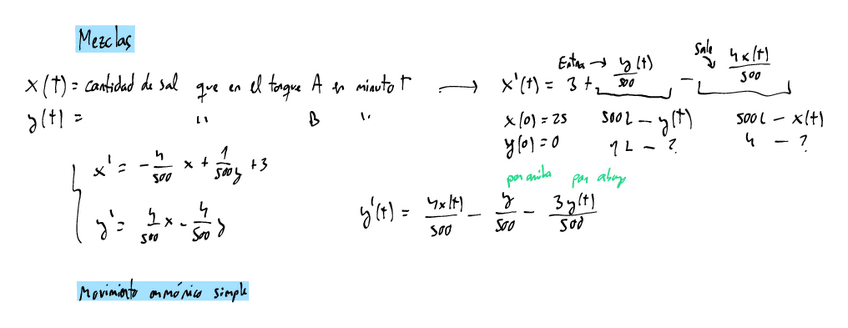 Mezclas
x(t) = cantidad de sal que en el tanque A en minuto t → x'(t) = 3 + y(t)/500 - 4x(t)/500
Entra → Sale
y(t) = " B "
x(0) = 25 500L - y(t) 500L - x(t)
y(0) = 0 1L - ? 4 - ?
x' = -4/500 x + 1/500 y + 3
por arriba por abajo
y' = 4/500 x - 4/500 y
y'(t) = 4x(t)/500 - y/500 - 3y(t)/500
Movimiento armónico simple